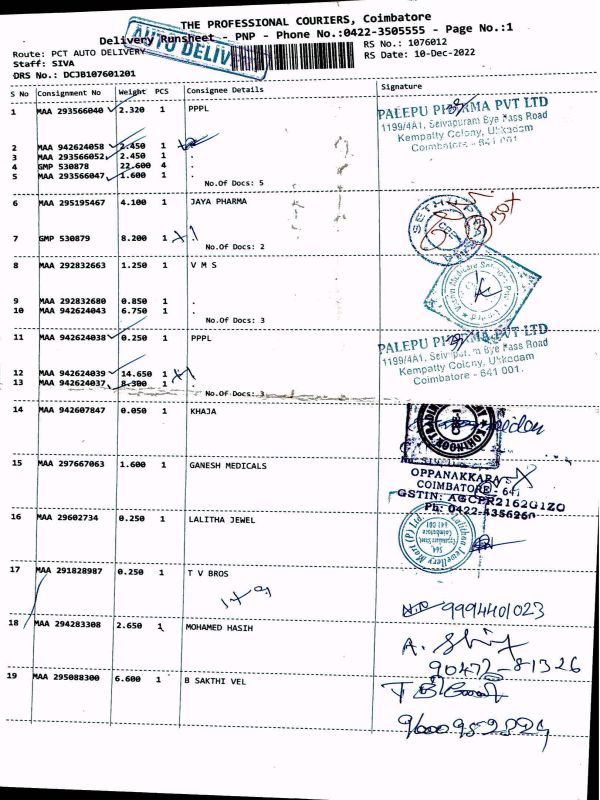 THE PROFESSIONAL COURIERS, Coimbatore
Delivery Runsheet - PNP - Phone No.:0422-3505555 - Page No.:1
AUTO DELIV
Route: PCT AUTO DELIVERY
RS No.: 1076012
Staff: SIVA
RS Date: 10-Dec-2022
DRS No.: DCJB107601201
S No Consignment No Weight PCS Consignee Details Signature
1 MAA 293566040 2.320 1 PPPL
PALEPU PHARMA PVT LTD
1199/4A1, Seivapuram Bye Pass Road
Kempatty Colony, Ukkadam
Coimbatore - 641 001.
2 MAA 942624058 2.450 1 .
3 MAA 293566052 2.450 1 .
4 GMP 530878 22.600 4 .
5 MAA 293566047 1.600 1 .
No.Of Docs: 5
6 MAA 295195467 4.100 1 JAYA PHARMA
7 GMP 530879 8.200 1 .
No.Of Docs: 2
8 MAA 292832663 1.250 1 V M S
9 MAA 292832680 0.850 1 .
10 MAA 942624043 6.750 1 .
No.Of Docs: 3
11 MAA 942624038 0.250 1 PPPL
PALEPU PHARMA PVT LTD
1199/4A1, Seivapuram Bye Pass Road
Kempatty Colony, Ukkadam
Coimbatore - 641 001.
12 MAA 942624039 14.650 1 .
13 MAA 942624037 8.300 1 .
No.Of Docs: 3
14 MAA 942607847 0.050 1 KHAJA
15 MAA 297667063 1.600 1 GANESH MEDICALS
OPPANAKKARA S
COIMBATORE - 641
GSTIN: AGCPR2162G1ZO
Ph: 0422-4356260
16 MAA 29602734 0.250 1 LALITHA JEWEL
17 MAA 291828987 0.250 1 T V BROS
9994401023
18 MAA 294283308 2.650 1 MOHAMED HASIH
90472-81326
19 MAA 295088300 6.600 1 B SAKTHI VEL